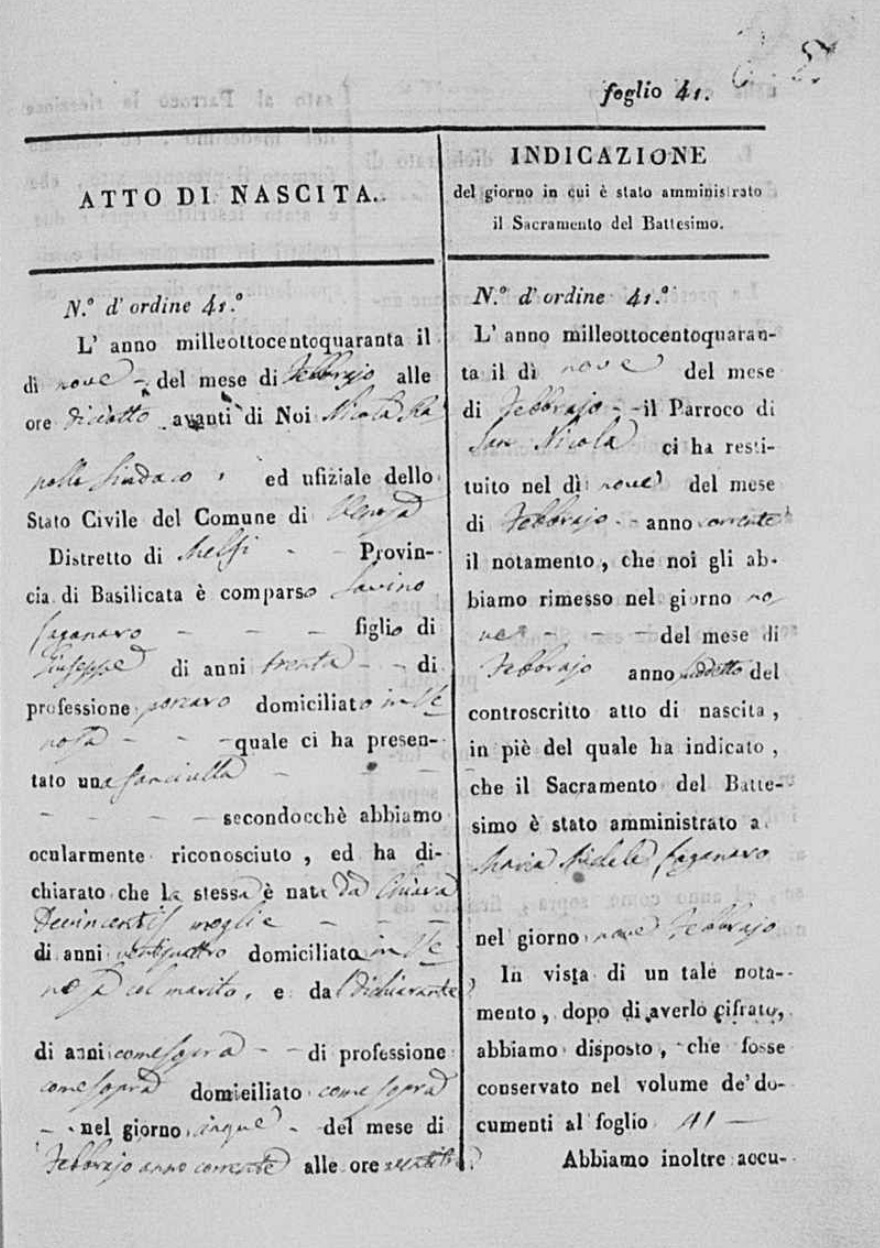 foglio 41.
ATTO DI NASCITA.
N.° d'ordine 41.°
L' anno milleottocentoquaranta il
dì nove - del mese di Febbrajo alle
ore diciotto avanti di Noi Nicola Ra
polla Sindaco, ed ufiziale dello
Stato Civile del Comune di Venosa
Distretto di Melfi - - Provin-
cia di Basilicata è comparso Savino
Paganaro - - - figlio di
Giuseppe di anni trenta - - di
professione porcaro domiciliato in Ve
nosa - - - quale ci ha presen-
tato una fanciulla - - -
- - - - secondocchè abbiamo
ocularmente riconosciuto, ed ha di-
chiarato che la stessa è nata da Chiara
Devincentis moglie - - -
di anni ventiquattro domiciliata in Ve
nosa col marito, e dal dichiarante
di anni come sopra - - di professione
come sopra domiciliato come sopra
- - nel giorno cinque - del mese di
Febbrajo anno corrente alle ore
INDICAZIONE
del giorno in cui è stato amministrato
il Sacramento del Battesimo.
N.° d'ordine 41.°
L' anno milleottocentoquaran-
ta il dì nove del mese
di Febbrajo - - il Parroco di
San Nicola ci ha resti-
tuito nel dì nove del mese
di Febbrajo - - anno corrente
il notamento, che noi gli ab-
biamo rimesso nel giorno no
ve - - - del mese di
Febbrajo anno suddetto del
controscritto atto di nascita,
in piè del quale ha indicato,
che il Sacramento del Batte-
simo è stato amministrato a
Maria Fidele Paganaro
nel giorno nove Febbrajo
In vista di un tale nota-
mento, dopo di averlo cifrato,
abbiamo disposto, che fosse
conservato nel volume de' do-
cumenti al foglio 41 -
Abbiamo inoltre accu-